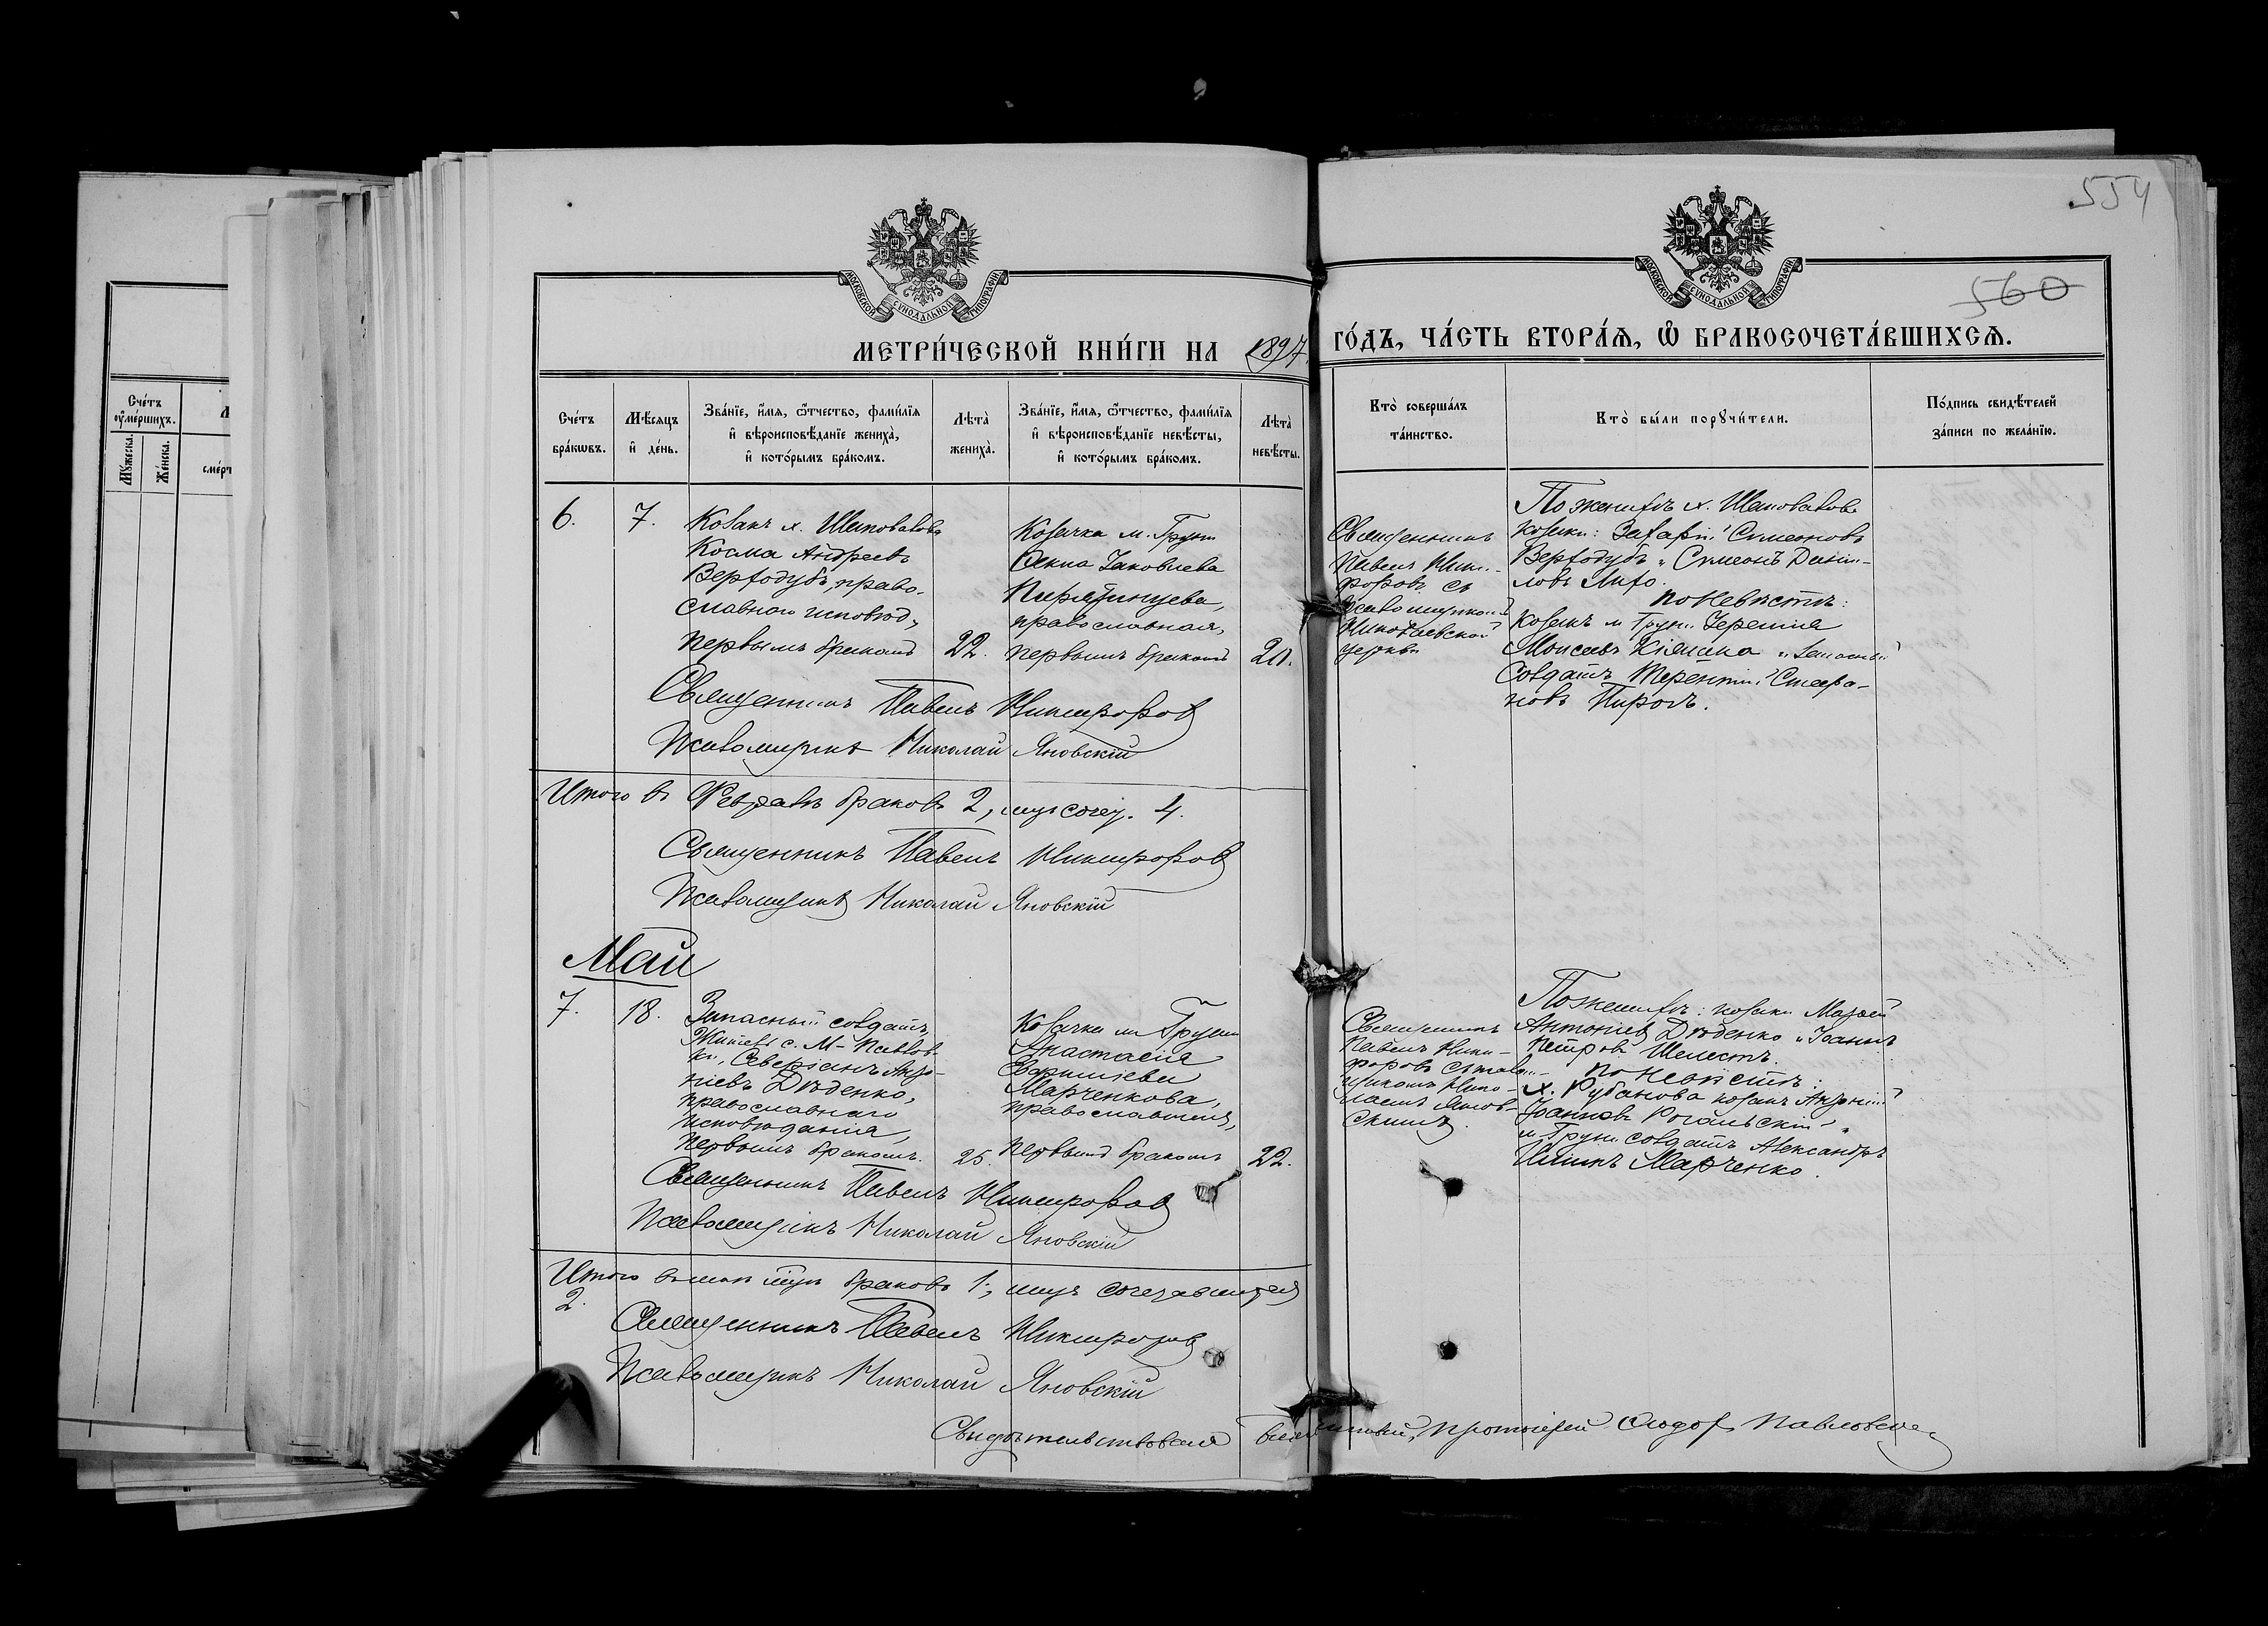 554
560
МОСКОВСКОЙ СУНОДАЛЬНОЙ ТИПОГРАФІИ
МОСКОВСКОЙ СУНОДАЛЬНОЙ ТИПОГРАФІИ
МЕТРИ́ЧЕСКОЙ КНИ́ГИ НА 1897 ГО́ДЪ, ЧА́СТЬ ВТОРА́Я, Ѡ БРАКОСОЧЕТА́ВШИХСЯ.
Сче́тъ ᲂумéршихъ.
Мꙋ́жеска.
Же́нска.
Сче́тъ бра́кѡвъ.
Мѣ́сяцъ и҆ де́нь.
Зва́нїе, и҆́мя, ѻ҆́тчество, фами́лїя и҆ вѣроисповѣ́данїе жениха̀, и҆ кото́рымъ бра́комъ.
Лѣта̀ жениха̀.
Зва́нїе, и҆́мя, ѻ҆́тчество, фами́лїя и҆ вѣроисповѣ́данїе невѣ́сты, и҆ кото́рымъ бра́комъ.
Лѣта̀ невѣ́сты.
Кто̀ соверша́лъ та́инство.
Кто̀ бы́ли порꙋчи́тели.
По́дпись свидѣ́телей за́писи по жела́нїю.
6.
7.
Козакъ х. Шаповалова
Косма Андреевъ
Вертодубъ, право-
славнаго исповѣд,
первымъ бракомъ
22.
Козачка м. Грун
Іаковлева
православная,
первымъ бракомъ
20.
Священникъ
Павелъ Ники-
форовъ съ
Николаевской
церкви
По женихѣ х. Шаповалова
козаки: Захарій Симеоновъ
Вертодубъ и Симеонъ Данiи-
ловъ
По невѣстѣ:
козакъ м Грун. Іеремія
Моисеевъ
солдатъ Терентій
новъ Пироль.
Священникъ Павелъ Никифоровъ
Псаломщикъ Николай Яновскій
Итого въ Февралѣ браковъ 2, лицъ сочет. 4.
Священникъ Павелъ Никифоровъ
Псаломщикъ Николай Яновскій
Май
7.
18.
Запасный солдатъ,
житель с. М-Павлов-
ки, Северіанъ Анто-
ніевъ Дѣденко,
православнаго
исповѣданія,
первымъ бракомъ.
25.
Козачка м Груни
Анастасія
Марченкова,
православная,
первымъ бракомъ
22.
Священникъ
Павелъ Ники-
форовъ съ псалом-
щикомъ Нико-
лаемъ Янов-
скимъ.
По женихѣ: козаки
Антоніевъ Дѣденко и Іоаннъ
Петровъ Шелестъ.
По невѣстѣ:
х. Рубанова козакъ Антоній
Іоанновъ Рогальскій и
м. Грун солдатъ Александръ
Ильинъ Марченко.
Священникъ Павелъ Никифоровъ
Псаломщикъ Николай Яновскій
Итого въ маѣ м-цѣ браковъ 1, лицъ сочетавшихся
2.
Священникъ Павелъ Никифоровъ
Псаломщикъ Николай Яновскій
Свидѣтельствовалъ Благочинный, Протоіерей